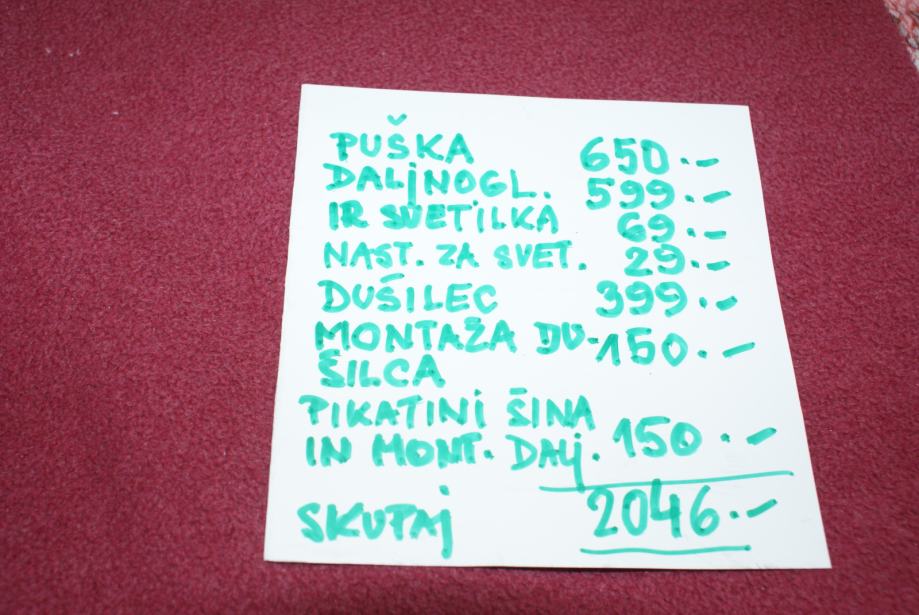 PUŠKA 650.-
DALjNOGL. 599.-
IR SVETILKA 69.-
NAST. ZA SVET. 29.-
DUŠILEC 399.-
MONTAŽA DU- 150.-
ŠILCA
PIKATINI ŠINA
IN MONT. DALj. 150.-
SKUPAj 2046.-